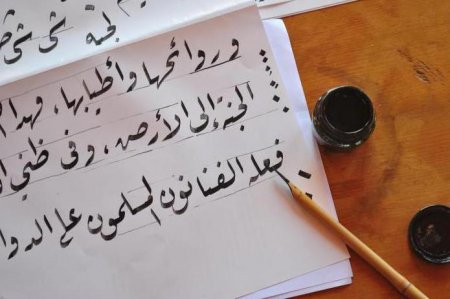 لجنة
وروائحها وأطيابها، فهذا
الجنة إلى الأرض، وفي ظني
فعله الفنانون المسلمون على الدوا